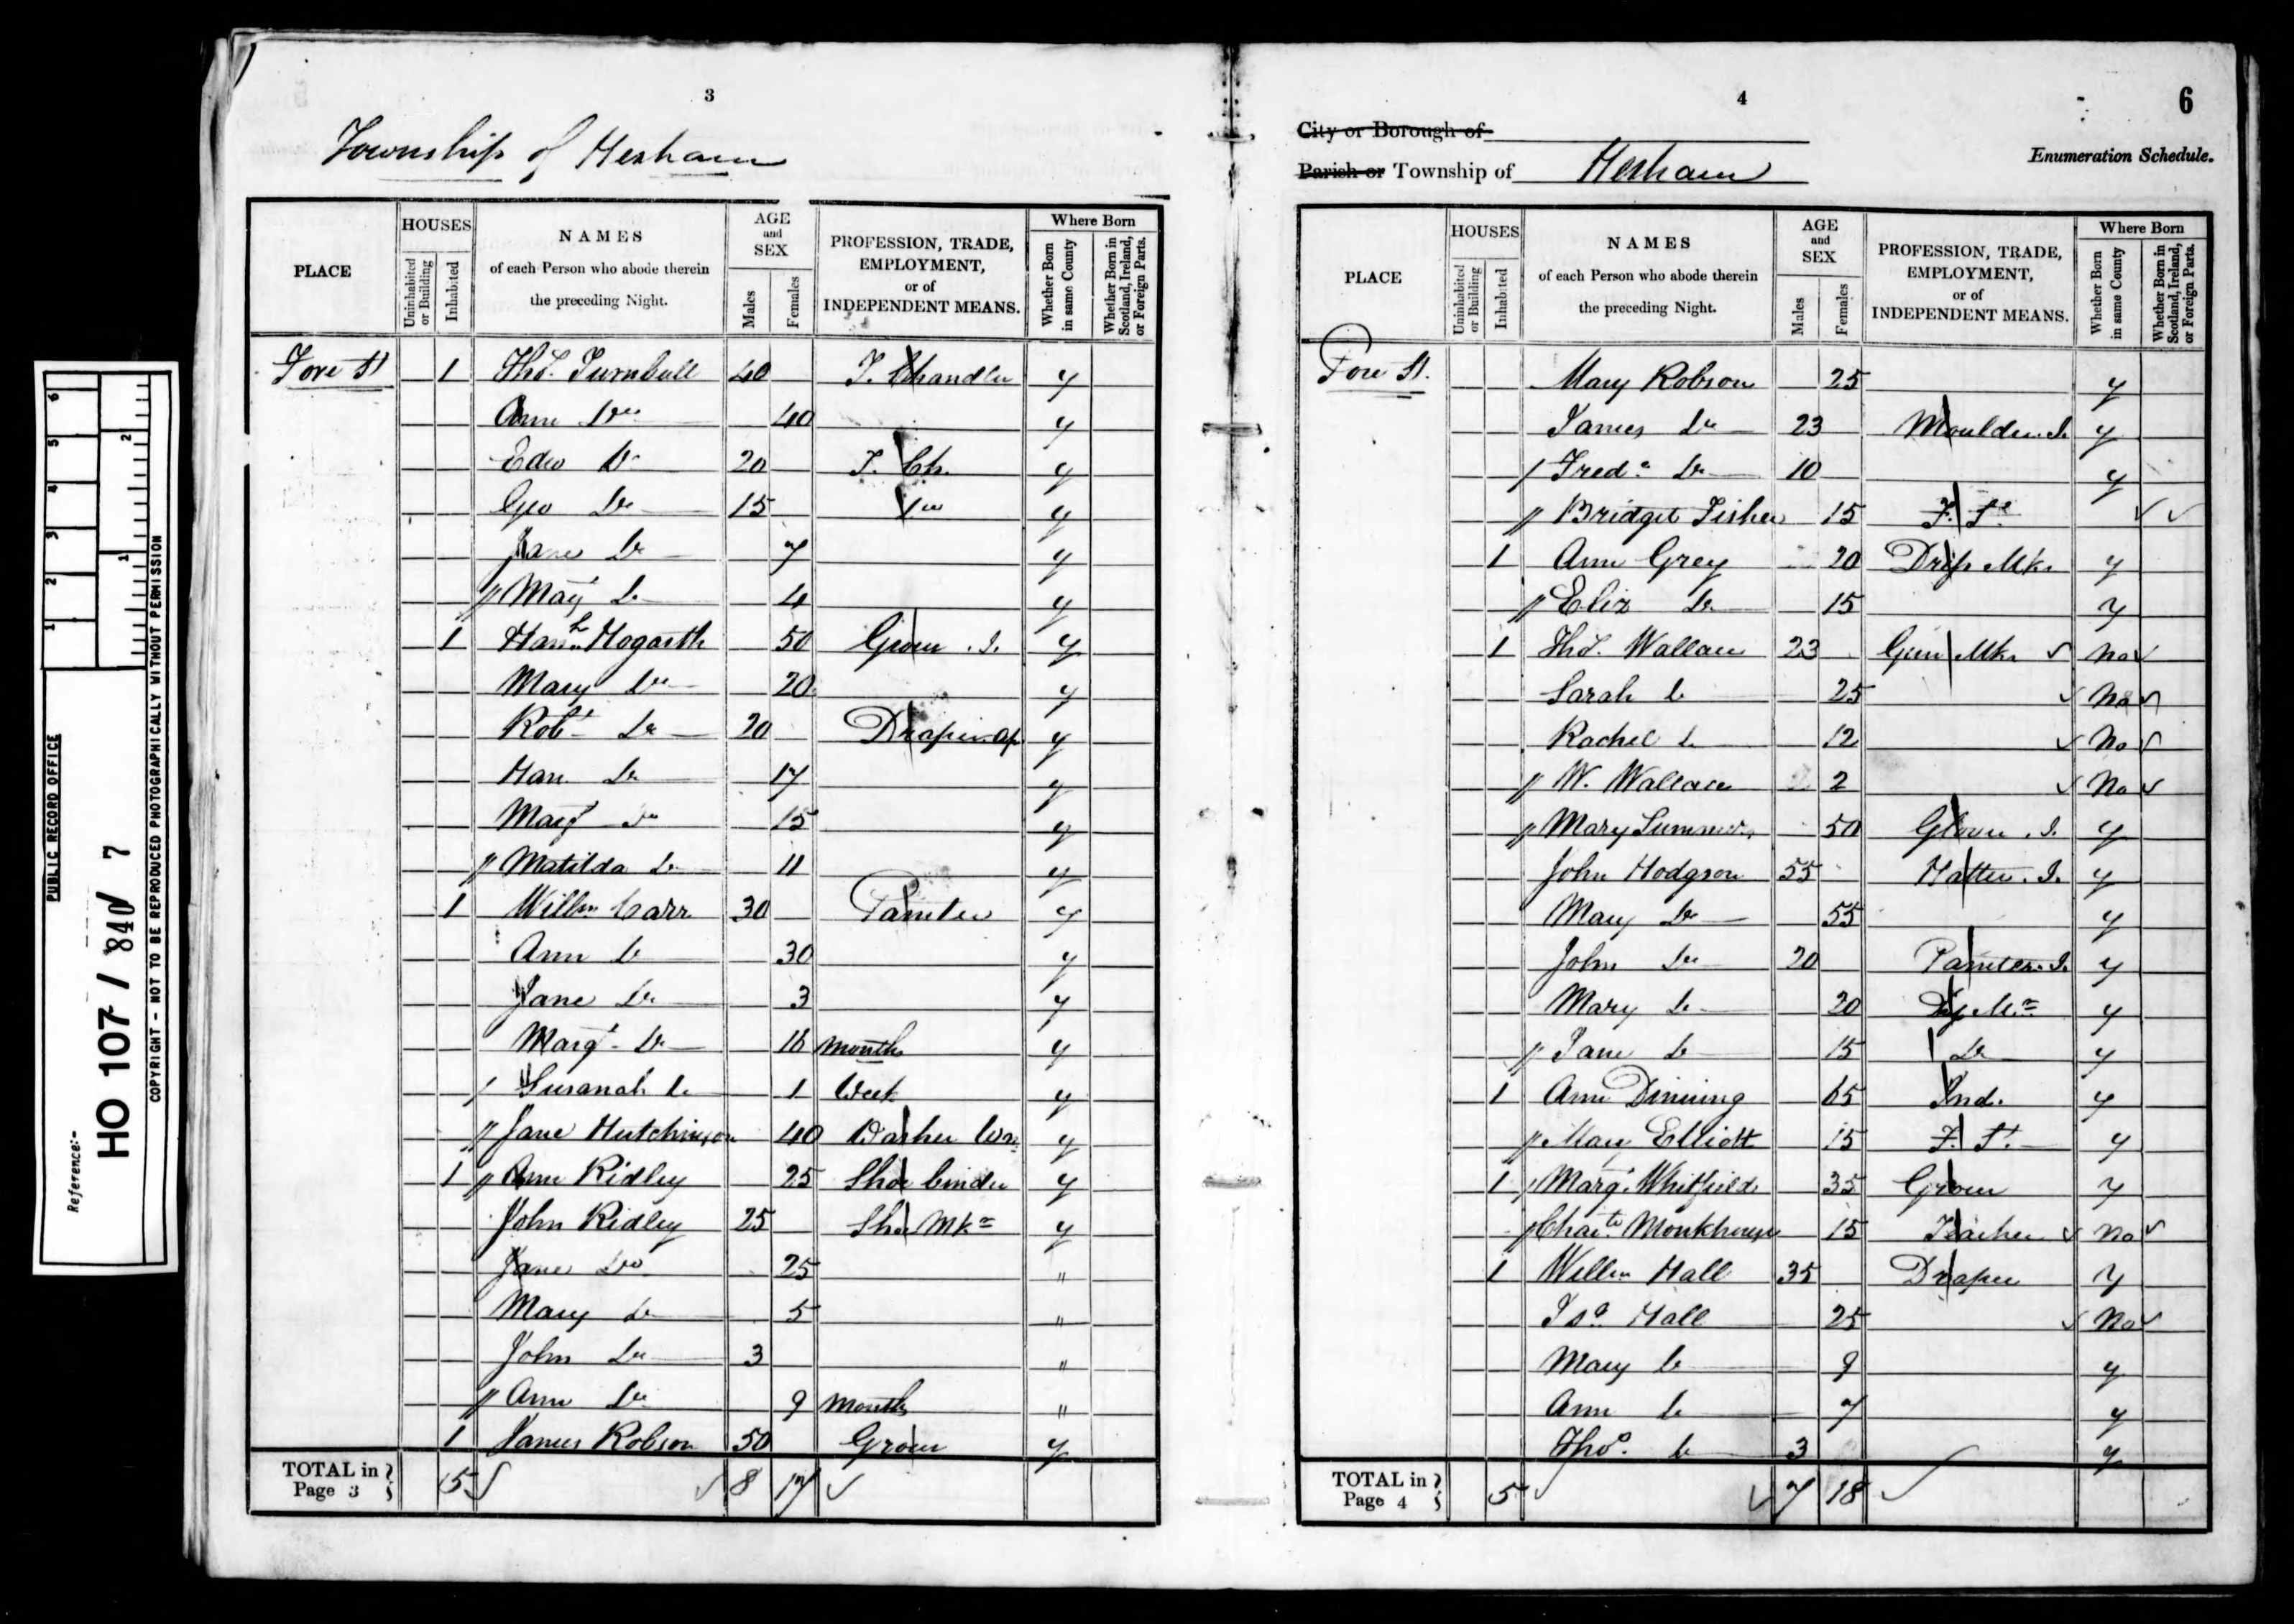 3
Township of Hexham
PLACE
HOUSES
Uninhabited or Building
Inhabited
NAMES of each Person who abode therein the preceding Night.
AGE and SEX
Males
Females
PROFESSION, TRADE, EMPLOYMENT, or of INDEPENDENT MEANS.
Where Born
Whether Born in same County
Whether Born in Scotland, Ireland, or Foreign Parts.
Fore St 1 Thos. Turnbull 40 T. Chandler y
Ann Do 40 y
Edw Do 20 T. Ch. y
Geo Do 15 Do y
Jane Do 7 y
Margt Do 4 y
1 Hanh Hogarth 50 Grocer y
Mary Do 20 y
Robt Do 20 Draper Ap y
Han Do 17 y
Margt Do 15 y
Matilda Do 11 y
1 Willm Carr 30 Painter y
Ann Do 30 y
Jane Do 3 y
Margt Do 16 months y
Susanah Do 1 Week y
Jane Hutchinson 40 Washer Wn y
1 Ann Ridley 25 Shoe binder y
John Ridley 25 Shoe Mkr y
Jane Do 25 "
Mary Do 5 "
John Do 3 "
Ann Do 9 months "
1 James Robson 50 Grocer y
TOTAL in Page 3 5 8 17
4
6
City or Borough of
Parish or Township of Hexham
Enumeration Schedule.
PLACE
HOUSES
Uninhabited or Building
Inhabited
NAMES of each Person who abode therein the preceding Night.
AGE and SEX
Males
Females
PROFESSION, TRADE, EMPLOYMENT, or of INDEPENDENT MEANS.
Where Born
Whether Born in same County
Whether Born in Scotland, Ireland, or Foreign Parts.
Fore St. Mary Robson 25 y
James Do 23 Moulder J. y
Fredk Do 10 y
Bridget Fisher 15 F. S.
1 Ann Grey 20 Dress Mkr y
Eliz Do 15 y
1 Thos. Wallace 23 Gun Mkr No
Sarah Do 25 No
Rachel Do 12 No
W. Wallace 2 No
Mary Summers 50 Glover J. y
John Hodgson 55 Hatter J. y
Mary Do 55 y
John Do 20 Painter J. y
Mary Do 20 y
Jane Do 15 Do y
1 Ann Dinning 65 Ind. y
Mary Elliott 15 F. S. y
1 Margt Whitfield 35 Grocer y
Chartte Monkhouse 15 Teacher No
1 Willm Hall 35 Draper y
Isa Hall 25 No
Mary Do 9 y
Ann Do 7 y
Thos. Do 3 y
TOTAL in Page 4 5 7 18
PUBLIC RECORD OFFICE
1 2 3 4 5 6
1 2
Reference:-
HO 107 / 840 / 7
COPYRIGHT - NOT TO BE REPRODUCED PHOTOGRAPHICALLY WITHOUT PERMISSION